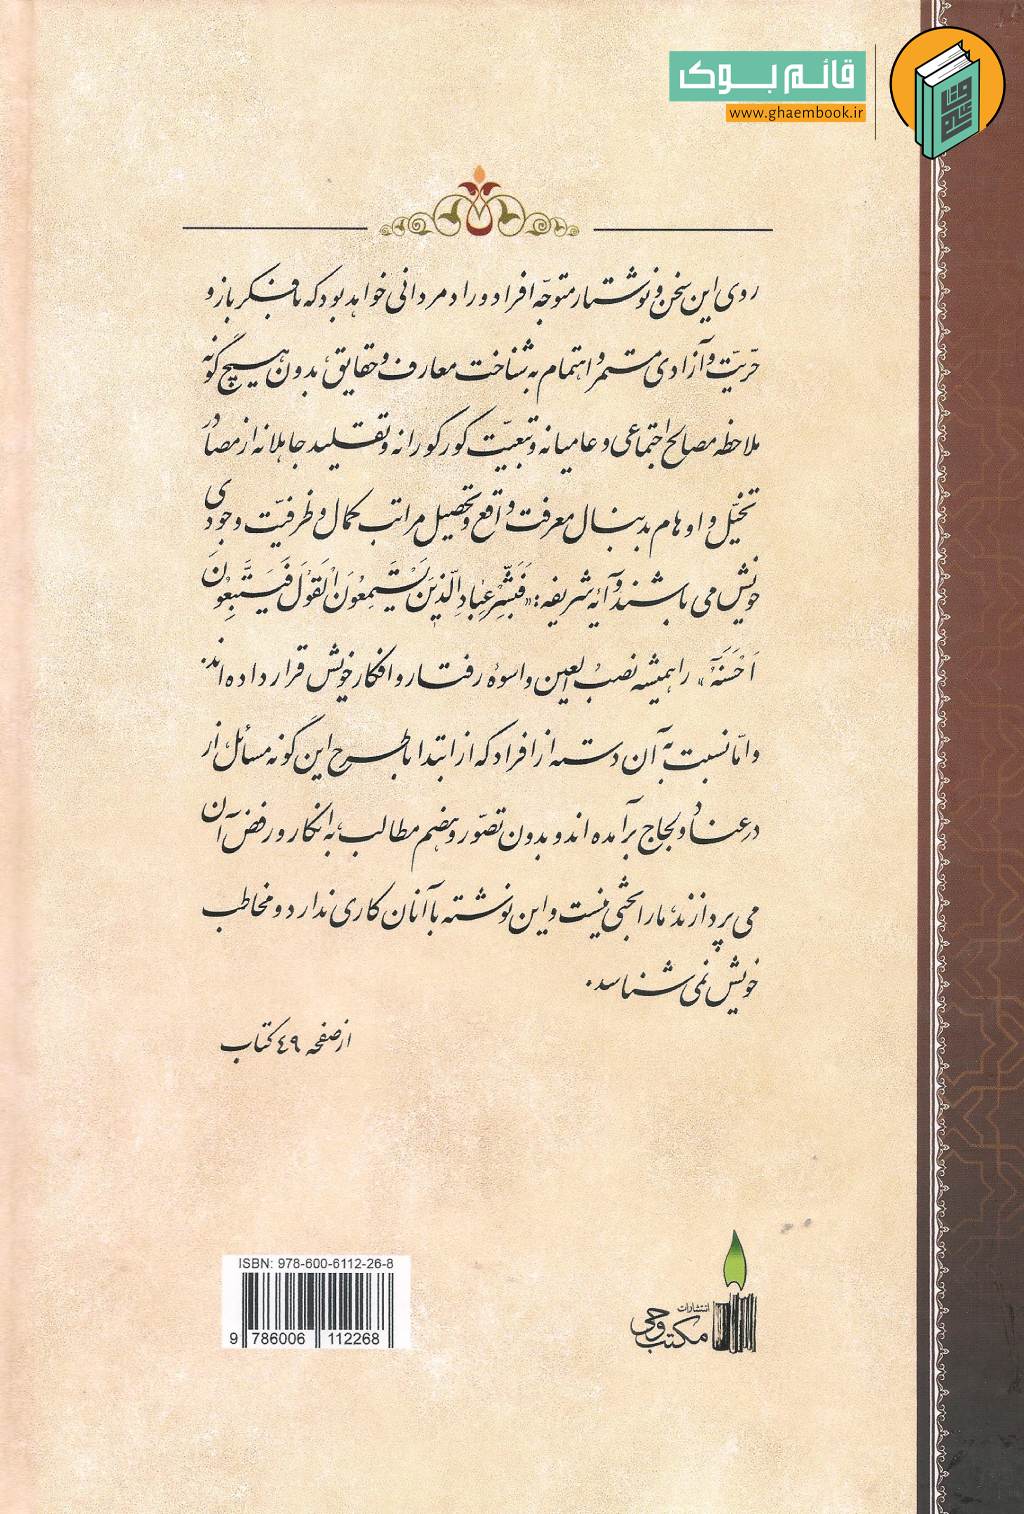 قائم بوک
www.ghaembook.ir
روی این سخن و نوشتار متوجّه افراد و رادمردانی خواهد بود که با فکر باز و
حریّت و آزادی مستمر و اهتمام به شناخت معارف و حقایق، بدون هیچ گونه
ملاحظه مصالح اجتماعی و عامیانه و تبعیّت کورکورانه و تقلید جاهلانه از مصادر
تخیّل و اوهام بدنبال معرفت واقع و تحصیل مراتب کمال و ظرفیّت وجودی
خویش می باشند و آیه شریفه: «فَبَشِّرْ عِبادِ الَّذِينَ يَسْتَمِعُونَ الْقَوْلَ فَيَتَّبِعُونَ
أَحْسَنَهُ» را همیشه نصب العین و اسوۀ رفتار و افکار خویش قرار داده اند.
و امّا نسبت به آن دسته از افراد که از ابتدا با طرح این گونه مسائل از
در عناد و لجاج برآمده اند و بدون تصوّر و هضم مطالب، به انکار و رفض آن
می پردازند، ما را بحثی نیست و این نوشته با آنان کاری ندارد و مخاطب
خویش نمی شناسد.
از صفحه ٤٩ کتاب
ISBN: 978-600-6112-26-8
9 786006 112268
انتشارات
مکتب وحی